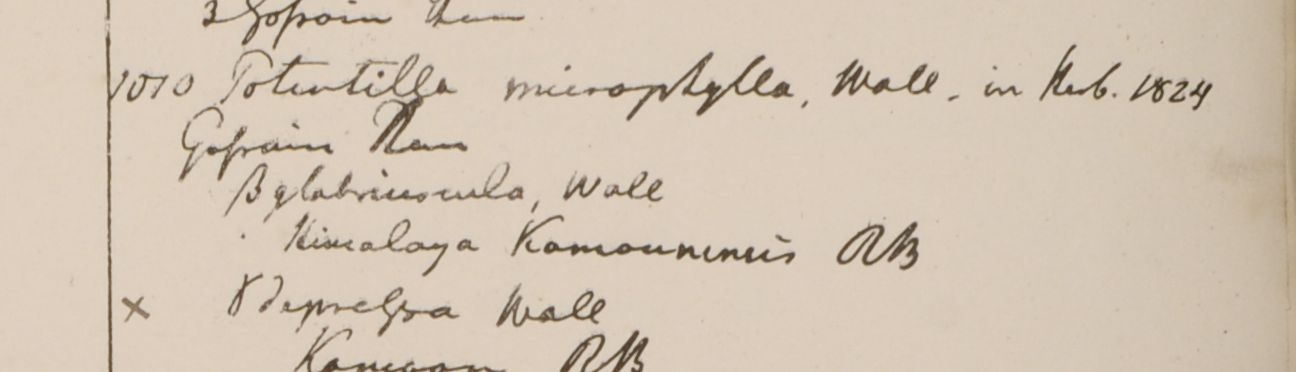 3 Gosain Than
1010 Potentilla microphylla, Wall. in Herb. 1824
Gosain Than
β glabriuscula, Wall
Himalaya Kamounensis RB
× γ depressa Wall
Kamaon RB